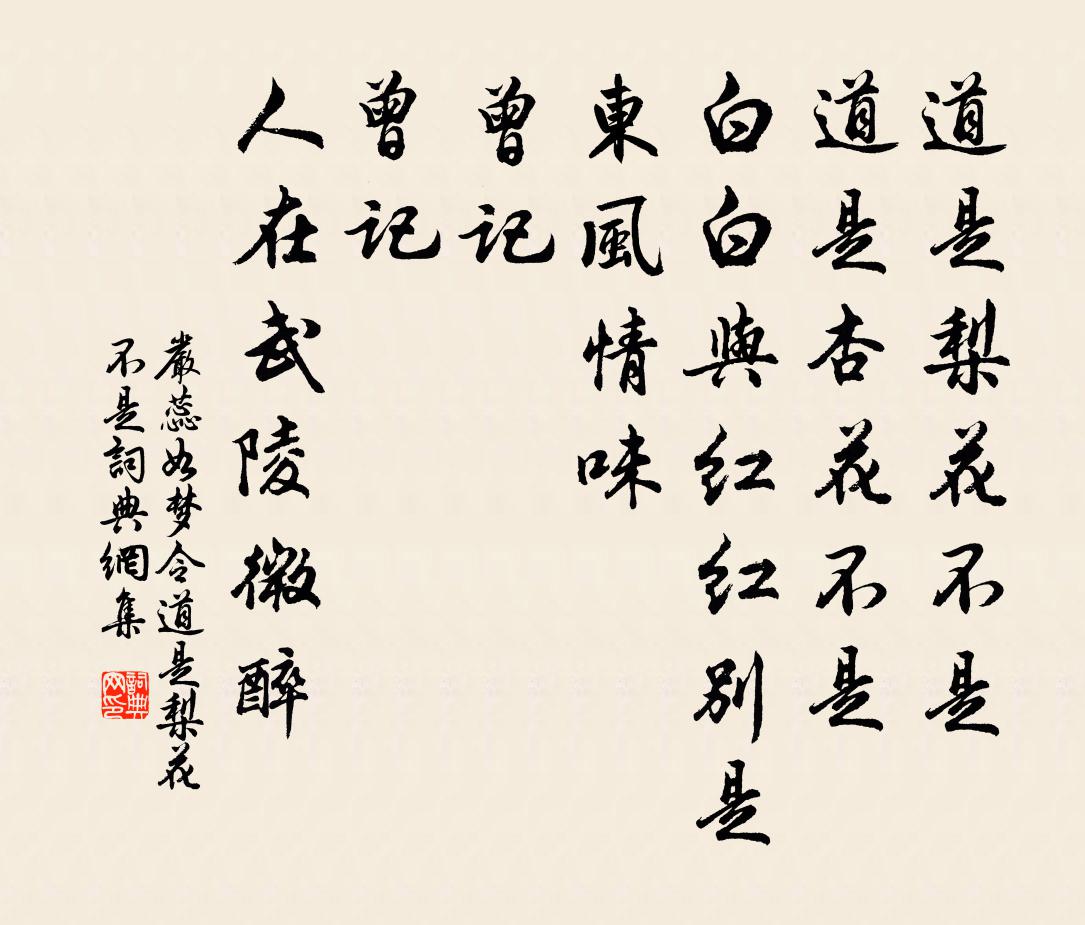 道是梨花不是
道是杏花不是
白白與红红别是
東風情味
曾記
曾記
人在武陵微醉
嚴蕊如梦令道是梨花
不是詞典網集
詞典
网印